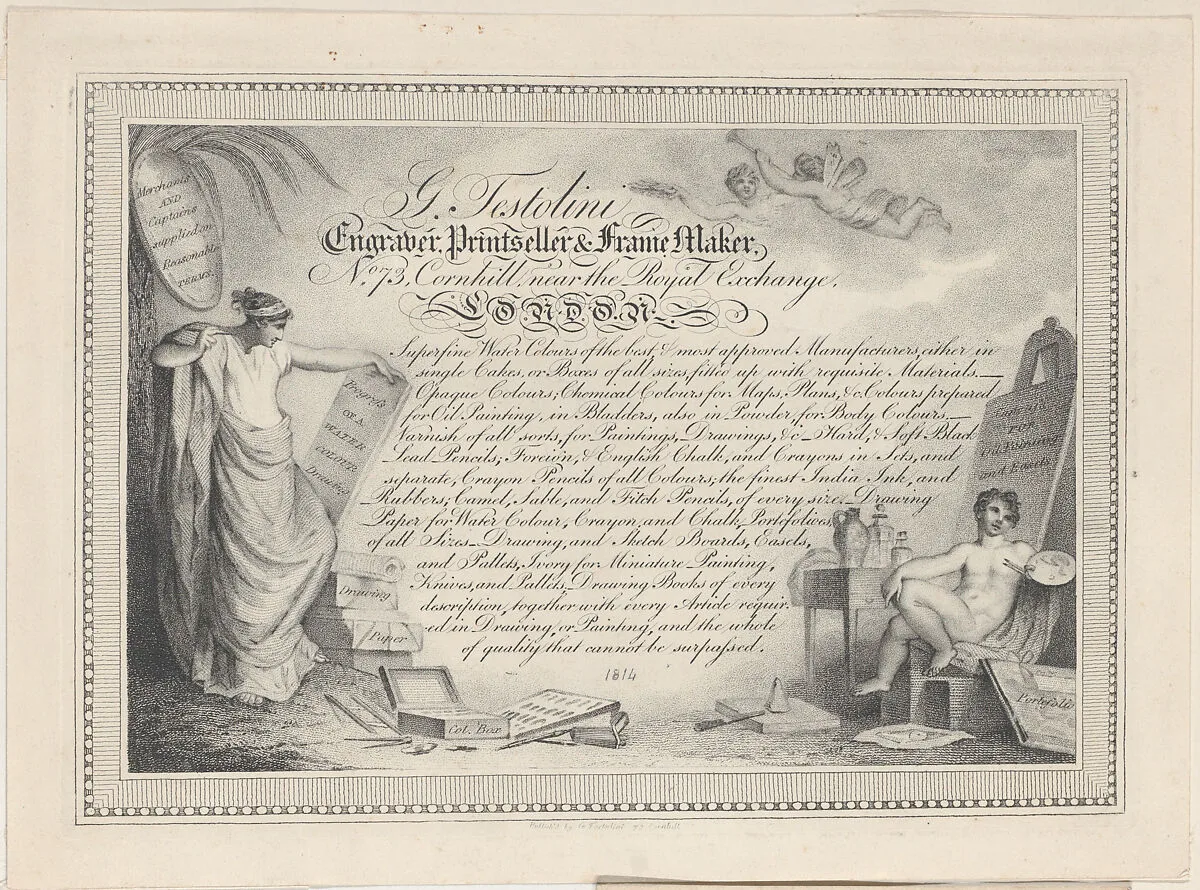 Merchants
AND
Captains
supplied on
Reasonable
TERMS.
G. Testolini
Engraver, Printseller & Frame Maker,
No. 73, Cornhill, near the Royal Exchange,
LONDON.
Superfine Water Colours of the best, & most approved Manufacturers, either in
single Cakes, or Boxes of all sizes, fitted up with requisite Materials.—
Opaque Colours; Chemical Colours for Maps, Plans, &c. Colours prepared
for Oil Painting, in Bladders, also in Powder, for Body Colours.—
Varnish of all sorts, for Paintings, Drawings, &c.—Hard, & Soft Black
Lead Pencils; Foreign, & English Chalk, and Crayons in Sets, and
separate, Crayon Pencils of all Colours; the finest India Ink, and
Rubbers; Camel, Sable, and Fitch Pencils, of every size.—Drawing
Paper for Water Colour, Crayon, and Chalk, Portefolives,
of all Sizes—Drawing, and Sketch Boards, Easels,
and Pallets, Ivory for Miniature Painting,
Knives, and Pallets, Drawing Books of every
description, together with every Article requir-
ed in Drawing, or Painting, and the whole
of quality that cannot be surpassed.
1814
Progress
OF A
WATER
COLOUR
Drawing
Drawing
Paper
Col. Box
FOR
Oil Painting
and Easels
Portefolio
Publish'd by G. Testolini 73 Cornhill